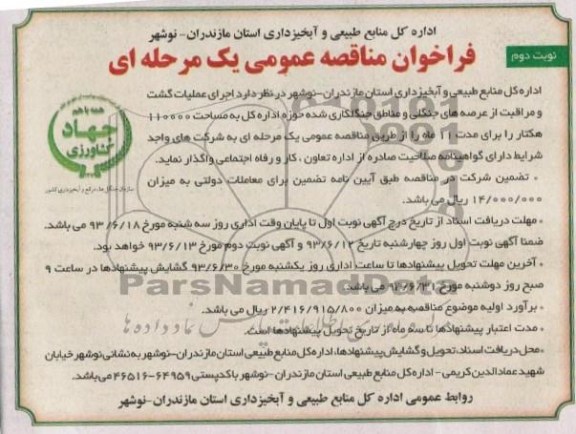 اداره کل منابع طبیعی و آبخیزداری استان مازندران- نوشهر
نوبت دوم
فراخوان مناقصه عمومی یک مرحله ای
همه با هم
جهاد
کشاورزی
سازمان جنگل ها، مراتع و آبخیزداری کشور
اداره کل منابع طبیعی و آبخیزداری استان مازندران-نوشهر در نظر دارد اجرای عملیات گشت
و مراقبت از عرصه های جنگلی و مناطق جنگلکاری شده حوزه اداره کل به مساحت ۱۱۰۰۰۰
هکتار را برای مدت ۱۱ ماه را از طریق مناقصه عمومی یک مرحله ای به شرکت های واجد
شرایط دارای گواهینامه صلاحیت صادره از اداره تعاون ، کار و رفاه اجتماعی واگذار نماید.
• تضمین شرکت در مناقصه طبق آیین نامه تضمین برای معاملات دولتی به میزان
۱۴/۰۰۰/۰۰۰ ریال می باشد.
• مهلت دریافت اسناد از تاریخ درج آگهی نوبت اول تا پایان وقت اداری روز سه شنبه مورخ ۹۳/۶/۱۸ می باشد.
ضمنا آگهی نوبت اول روز چهارشنبه تاریخ ۹۳/۶/۱۲ و آگهی نوبت دوم مورخ ۹۳/۶/۱۳ خواهد بود.
• آخرین مهلت تحویل پیشنهادها تا ساعت اداری روز یکشنبه مورخ ۹۳/۶/۳۰ گشایش پیشنهادها در ساعت ۹
صبح روز دوشنبه مورخ ۹۳/۶/۳۱ می باشد.
ParsNamadData
• برآورد اولیه موضوع مناقصه به میزان ۲/۴۱۶/۹۱۵/۸۰۰ ریال می باشد.
• مدت اعتبار پیشنهادها تا سه ماه از تاریخ تحویل پیشنهادها است.
• محل دریافت اسناد، تحویل و گشایش پیشنهادها، اداره کل منابع طبیعی استان مازندران-نوشهر به نشانی نوشهر خیابان
شهید عمادالدین کریمی - اداره کل منابع طبیعی استان مازندران-نوشهر با کدپستی ۶۴۹۵۹-۴۶۵۱۶ می باشد.
روابط عمومی اداره کل منابع طبیعی و آبخیزداری استان مازندران-نوشهر